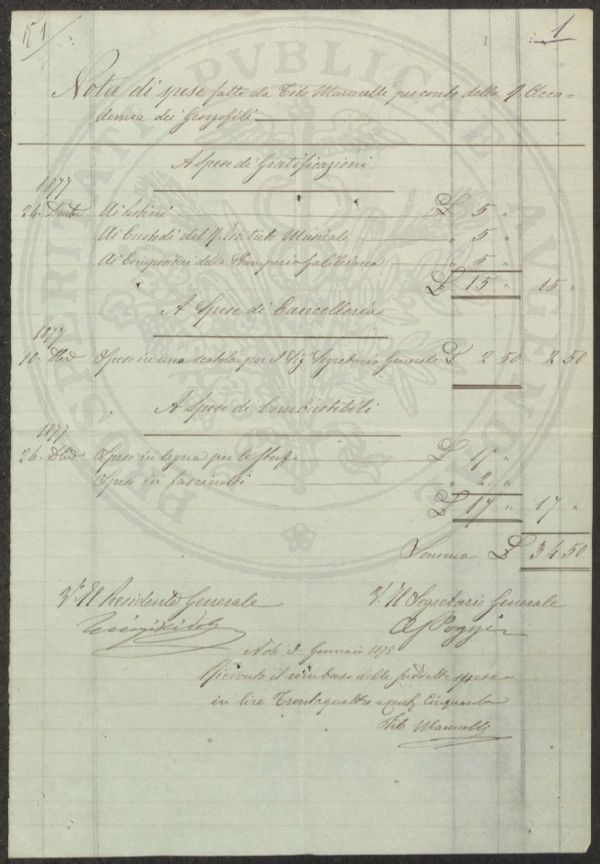 1
Note di spese fatte da Tito Marucelli per conto della R. Acca=
demia dei Georgofili
A Spese di Gratificazioni
1877
24. Ai Postini £ 5 "
Ai Custodi del R. Istituto Musicale " 5 "
Ai Compositori della Stamperia Galileiana " 5 "
£ 15 " 15 "
A Spese di Cancelleria
1877
10. Spese in una scatola per il Sig. Segretario Generale £ 2 50 2 50
A Spese di Combustibili
1877
26. Spese in legna per le stufe £ 15 "
Spese in fascinotti " 2 "
£ 17 " 17 "
Somma £ 34 50
V. Il Presidente Generale
V. Il Segretario Generale
Poggi
Gennaio 1878
Ricevuto il rimborso delle suddette spese
in lire Trentaquattro e cent. Cinquanta
Tito Marucelli
PROSPERITATI PVBLICAE AVGENDAE